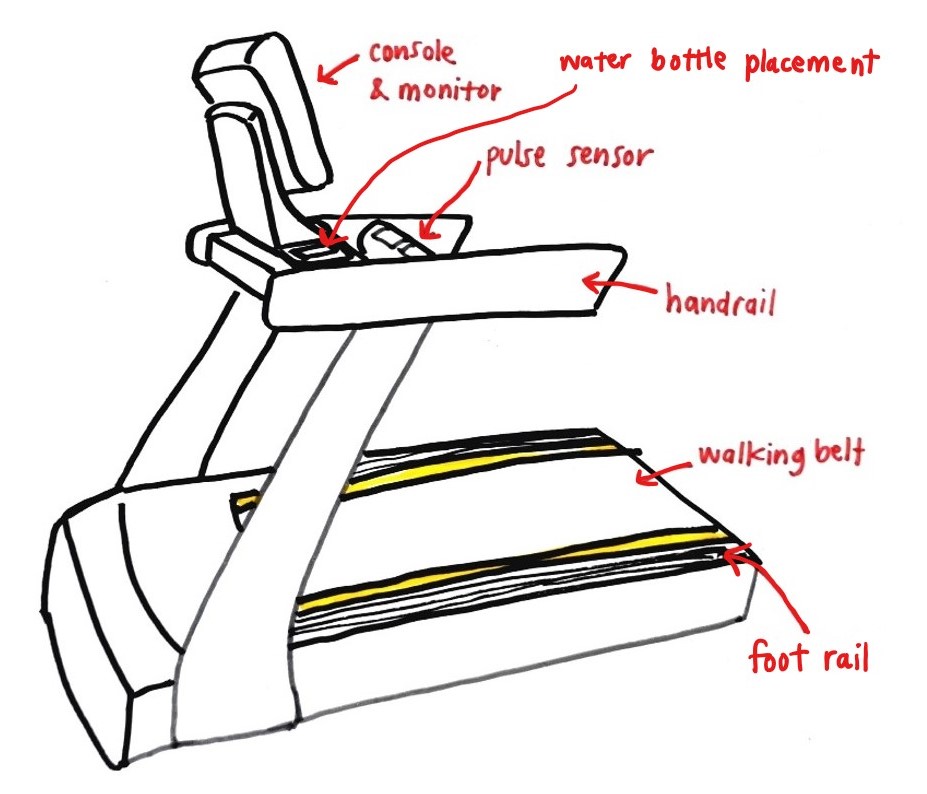 console
& monitor
water bottle placement
pulse sensor
handrail
walking belt
foot rail